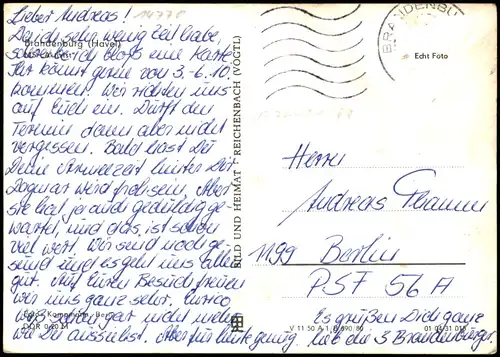 Lieber Andreas!
Da ich sehr wenig Zeit habe,
Brandenburg (Havel)
schreibe ich bloß eine Karte.
Ihr könnt gerne von 3.-6.10.
kommen. Wir richten uns
auf Euch ein. Dürft den
Termin dann aber nicht
vergessen. Bald hast Du
Deine Armeezeit hinter Dir.
Dagmar wird froh sein. Aber
sie hat ja auch geduldig ge-
wartet, und das ist schon
viel wert. Wir sind noch ge-
sund und es geht uns allen
gut. Auf Euren Besuch freuen
wir uns ganz sehr. Enrico
weiß schon gar nicht mehr
wie Du aussiehst. Aber für heute genug.
DDR 0,20 M
BILD UND HEIMAT REICHENBACH (VOGTL)
BRANDENBU
Echt Foto
Herrn
Andreas
1199 Berlin
PSF 56 A
V 11 50 A 1
01 03 31 015
Es grüßen Dich ganz
lieb die 3 Brandenburger